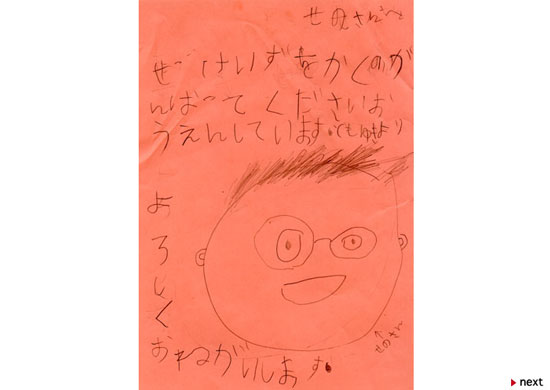 せのさんへ
ぜっけいずをかくのが
んばってくださいお
うえんしています。ともゆきより
よろしく
おねがいします。
↑
せのさん
next